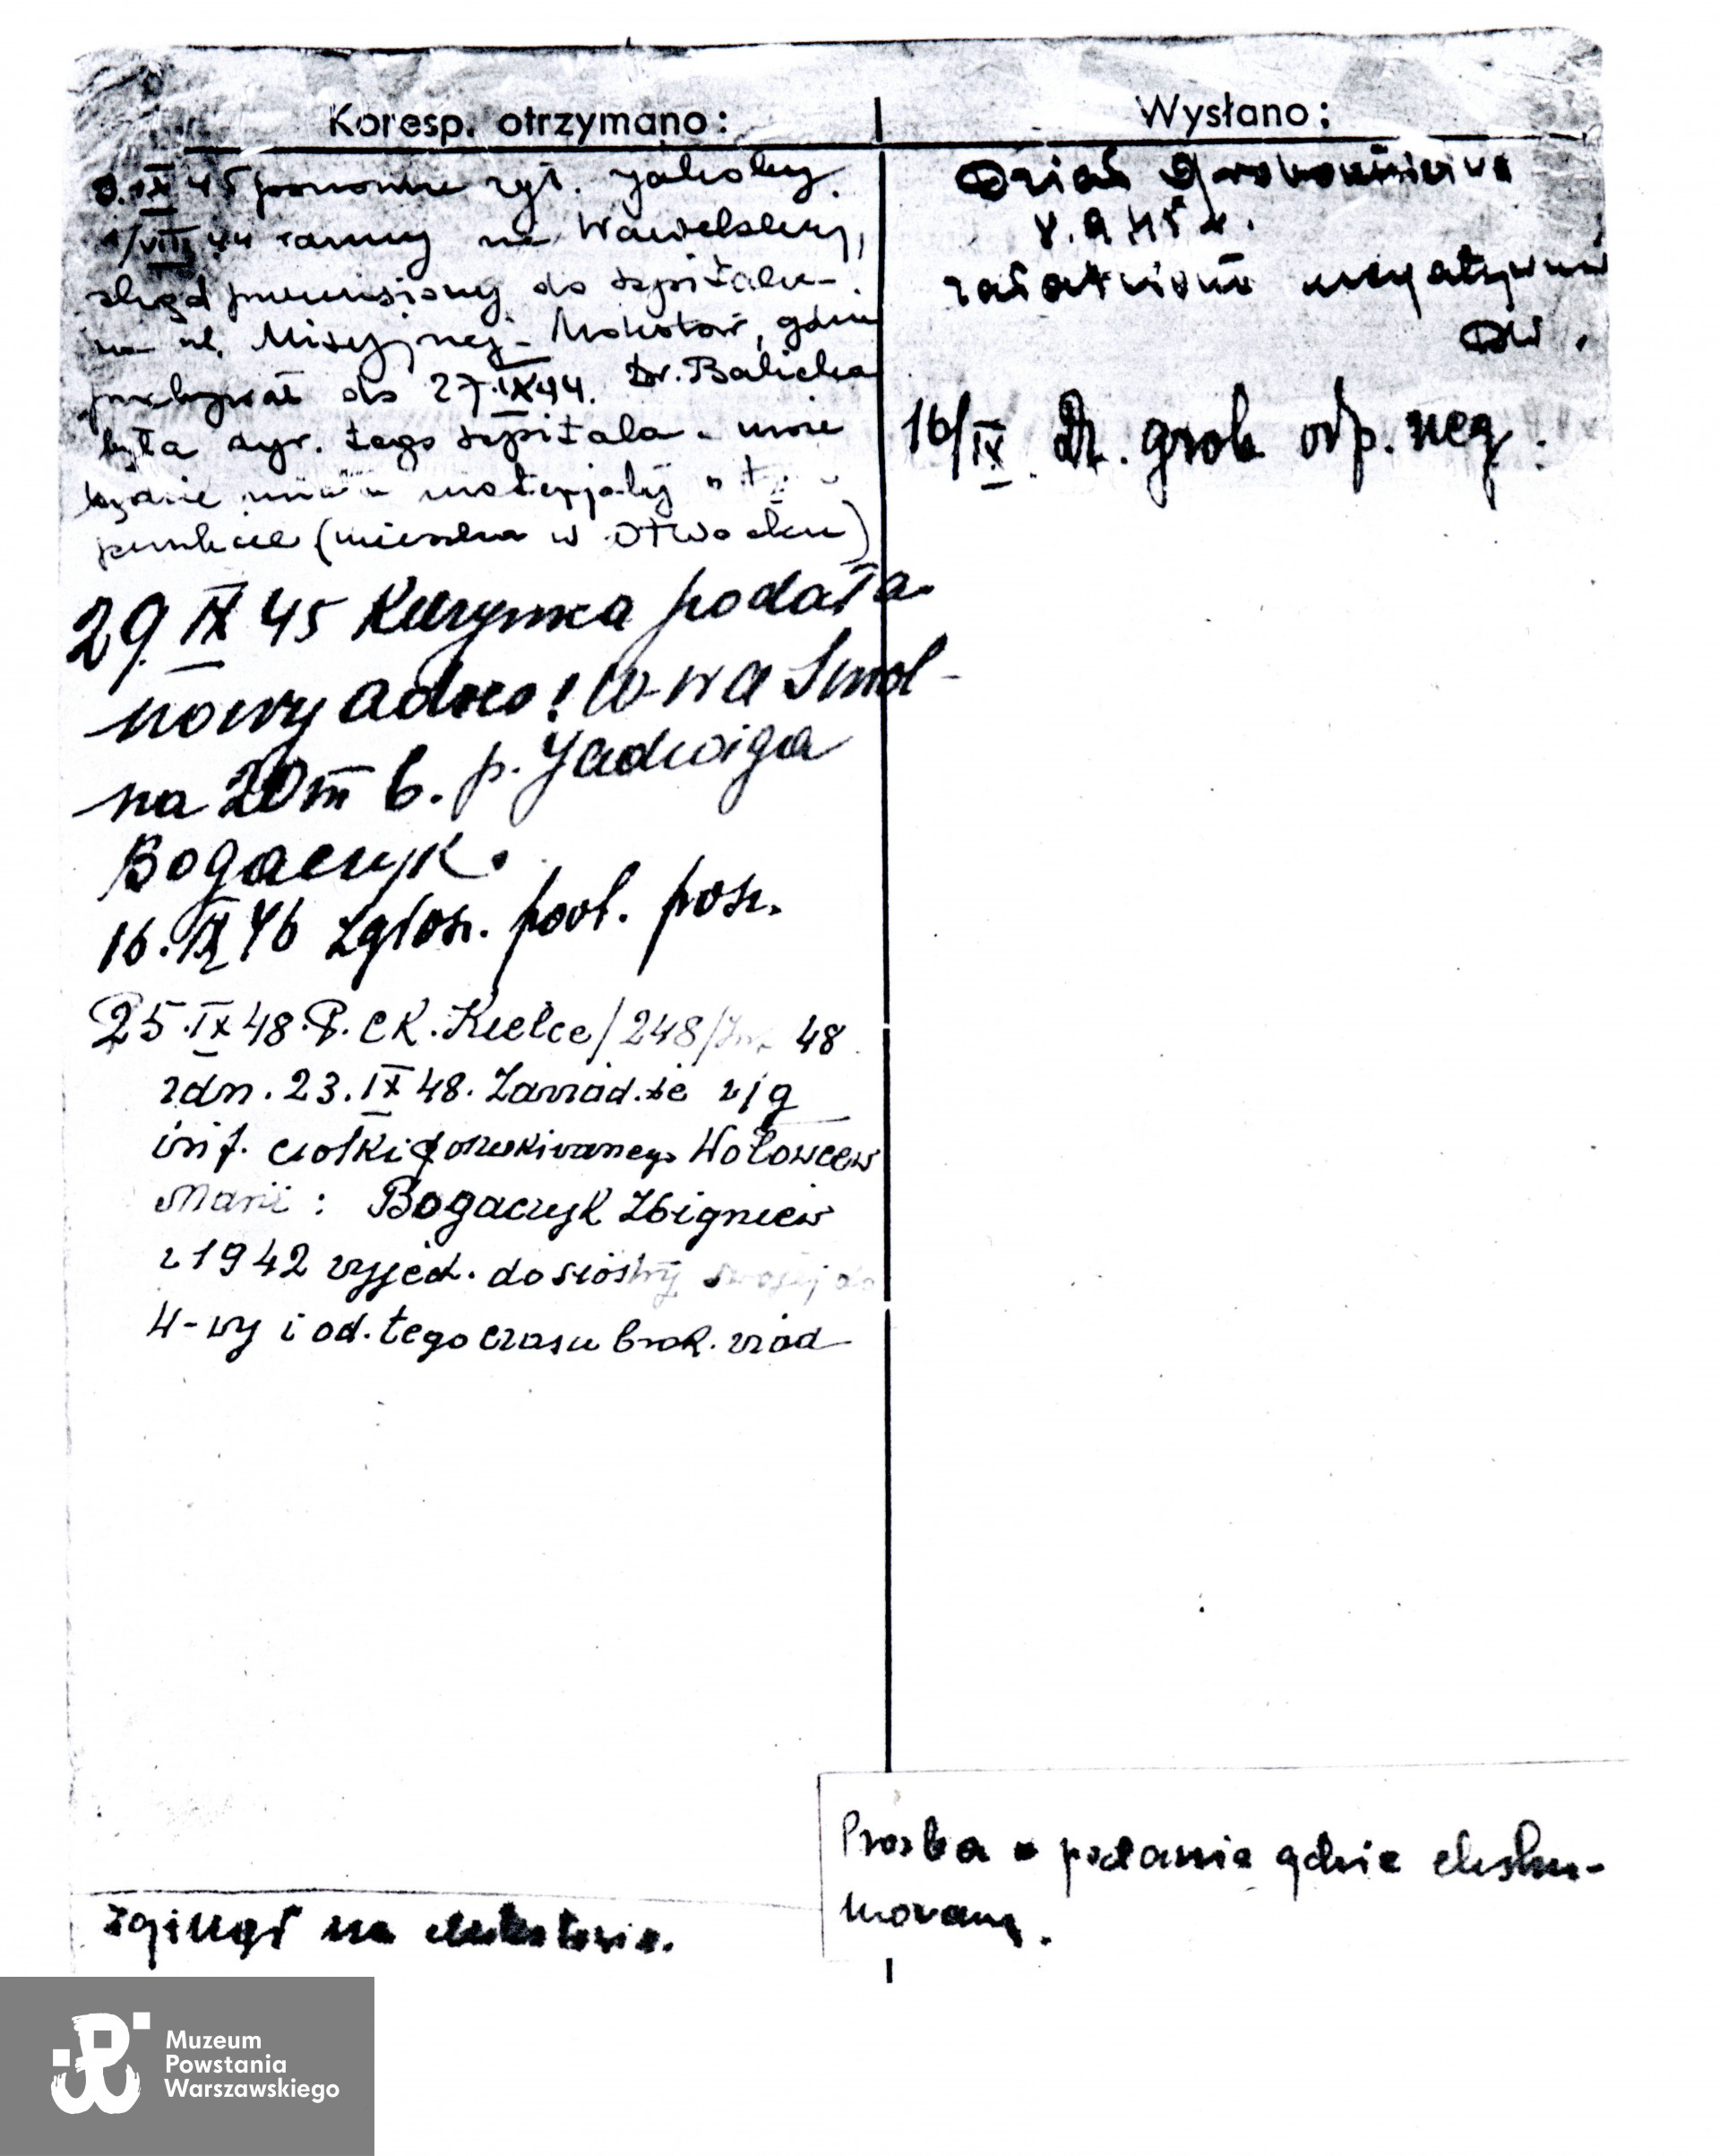 Koresp. otrzymano:
IX 45 ponownie zgł. jakoby
1/VIII 44 ranny na Wawelskiej,
skąd przeniesiony do szpitala
na ul. Misyjnej - Mokotów, gdzie
przebywał do 27.IX 44. Dr. Balicka
była dyr. tego szpitala -
będzie miała materjały
punkcie (mieszka w Otwocku)
29 IX 45 podała
nowy adres! W-wa Smol-
na 20 m 6. p. Jadwiga
Bogaczyk.
16. IX 46 Zgłosz. pow. posz.
25.IX 48 P.CK. Kielce/248/ 48
z dn. 23.IX 48. Zawiad. że w/g
inf. ciotki poszukiwanego Wołowcew
Marii: Bogaczyk Zbigniew
w 1942 wyjech. do siostry swojej do
W-wy i od. tego czasu brak. wiad
zginął na Mokotowie.
Wysłano:
Dział Grobownictwa
załatwiono negatywnie
16/IX Dz. grob odp. neg.
Prośba o podanie gdzie ekshu-
mowany.
Muzeum
Powstania
Warszawskiego